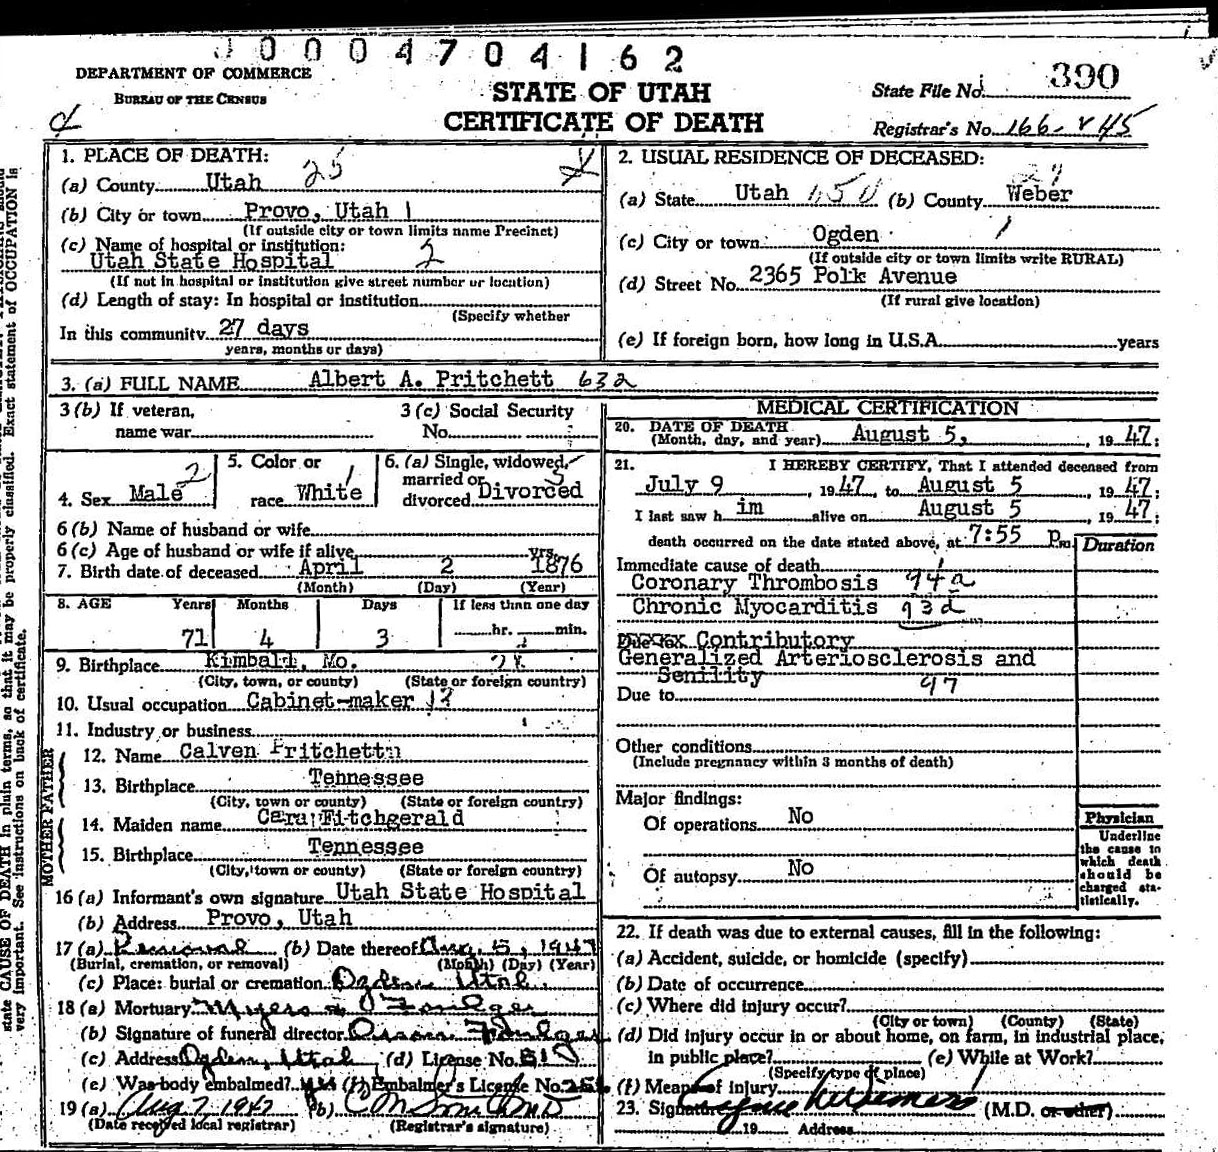 0 0 0 4 7 0 4 1 6 2
DEPARTMENT OF COMMERCE
BUREAU OF THE CENSUS
STATE OF UTAH
CERTIFICATE OF DEATH
State File No. 390
Registrar's No. 166-
1. PLACE OF DEATH: 25
(a) County Utah
(b) City or town Provo, Utah 1
(If outside city or town limits name Precinct)
(c) Name of hospital or institution:
Utah State Hospital 2
(If not in hospital or institution give street number or location)
(d) Length of stay: In hospital or institution
(Specify whether
In this community 27 days
years, months or days)
2. USUAL RESIDENCE OF DECEASED:
(a) State Utah (b) County Weber
(c) City or town Ogden
(If outside city or town limits write RURAL)
(d) Street No. 2365 Polk Avenue
(If rural give location)
(e) If foreign born, how long in U.S.A. years
3. (a) FULL NAME Albert A. Pritchett 632
3 (b) If veteran,
name war
3 (c) Social Security
No.
4. Sex Male 2
5. Color or
race White 1
6. (a) Single, widowed,
married or
divorced Divorced
6 (b) Name of husband or wife
6 (c) Age of husband or wife if alive yrs.
7. Birth date of deceased April 2 1876
(Month) (Day) (Year)
8. AGE Years Months Days If less than one day
71 4 3 hr. min.
9. Birthplace Kimball, Mo.
(City, town, or county) (State or foreign country)
10. Usual occupation Cabinet-maker
11. Industry or business
FATHER
12. Name Calven Pritchett
13. Birthplace Tennessee
(City, town or county) (State or foreign country)
MOTHER
14. Maiden name Cara Fitchgerald
15. Birthplace Tennessee
(City, town or county) (State or foreign country)
16 (a) Informant's own signature Utah State Hospital
(b) Address Provo, Utah
17 (a) Removal (b) Date thereof Aug. 5, 1947
(Burial, cremation, or removal) (Month) (Day) (Year)
(c) Place: burial or cremation Ogden Utah.
18 (a) Mortuary Myers & Foulger
(b) Signature of funeral director Foulger
(c) Address Ogden, Utah (d) License No.
(e) Was body embalmed? yes (f) Embalmer's License No.
19 (a) Aug 7, 1947 (b)
(Date received local registrar) (Registrar's signature)
MEDICAL CERTIFICATION
20. DATE OF DEATH
(Month, day, and year) August 5, , 1947;
21. I HEREBY CERTIFY, That I attended deceased from
July 9 , 1947, to August 5 , 1947;
I last saw him alive on August 5 , 1947;
death occurred on the date stated above, at 7:55 Pm.
Duration
Immediate cause of death
Coronary Thrombosis 94a
Chronic Myocarditis 93d
Due to Contributory
Generalized Arteriosclerosis and
Senility 97
Due to
Other conditions
(Include pregnancy within 3 months of death)
Major findings:
Of operations No
Of autopsy No
Physician
Underline
the cause to
which death
should be
charged sta-
tistically.
22. If death was due to external causes, fill in the following:
(a) Accident, suicide, or homicide (specify)
(b) Date of occurrence
(c) Where did injury occur?
(City or town) (County) (State)
(d) Did injury occur in or about home, on farm, in industrial place,
in public place? (e) While at Work?
(Specify type of place)
(f) Means of injury
23. Signature Eugene (M.D. or other)
19 Address
state CAUSE OF DEATH in plain terms, so that it may be properly classified. Exact statement of OCCUPATION is
very important. See instructions on back of certificate.